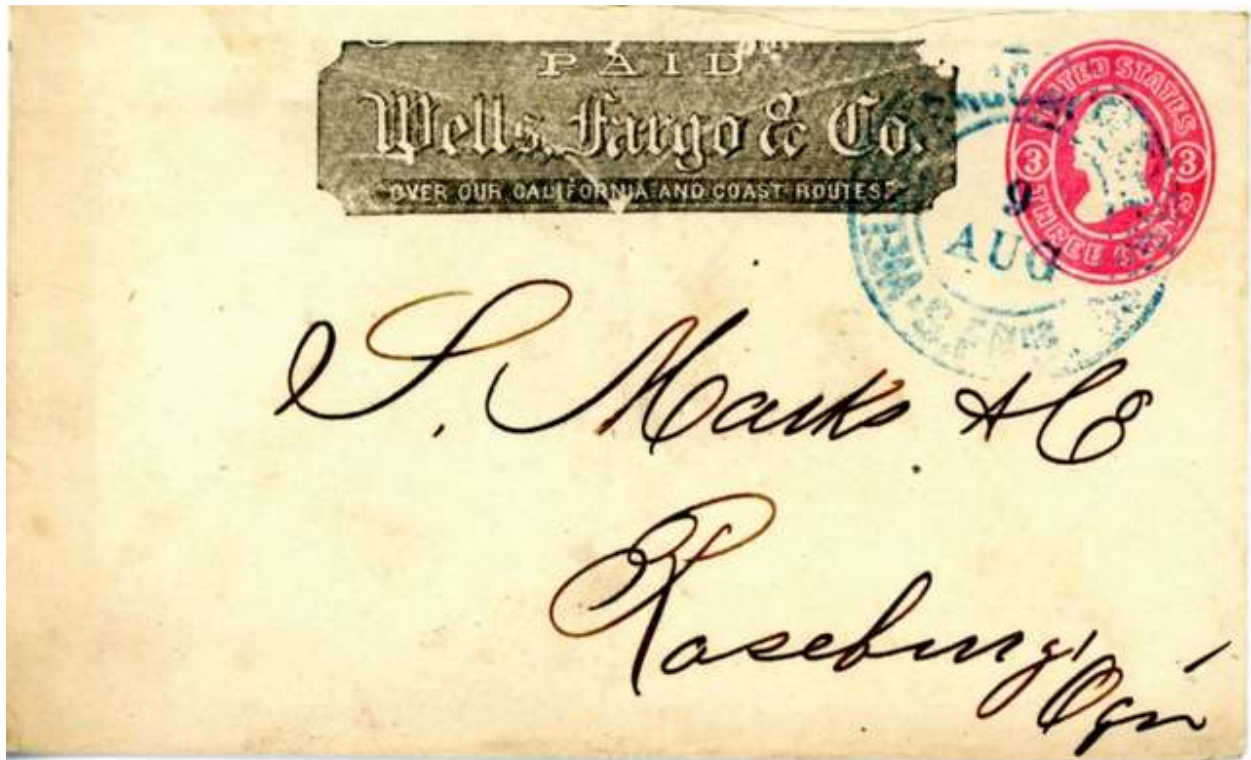 PAID
Wells, Fargo & Co.
OVER OUR CALIFORNIA AND COAST ROUTES.
UNITED STATES
3 3
THREE CENTS
9
AUG
S. Marks & Co
Roseburg,
Ogn